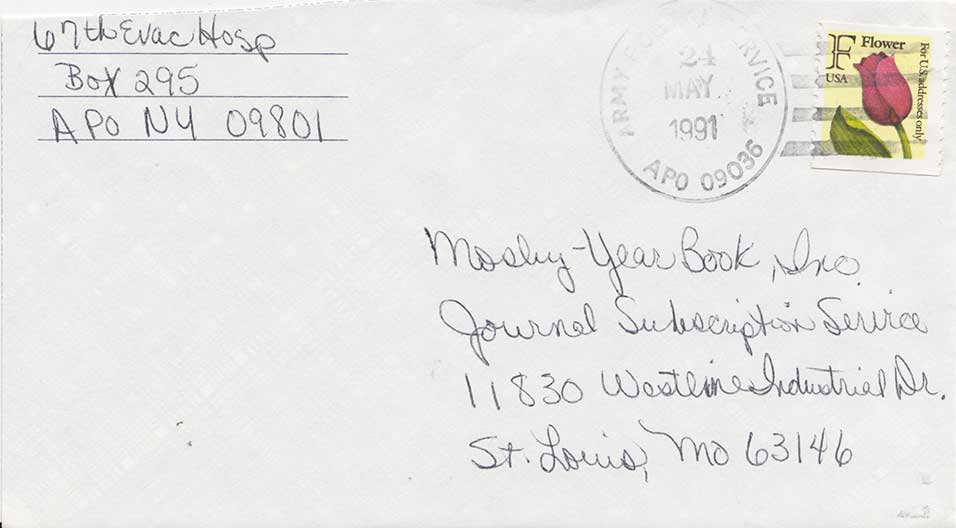 67th Evac Hosp
Box 295
APO NY 09801
ARMY SERVICE
24
MAY
1991
APO 09036
F Flower
USA
For U.S. addresses only
Mosby-Year Book, Inc.
Journal Subscription Service
11830 Westline Industrial Dr.
St. Louis, Mo 63146